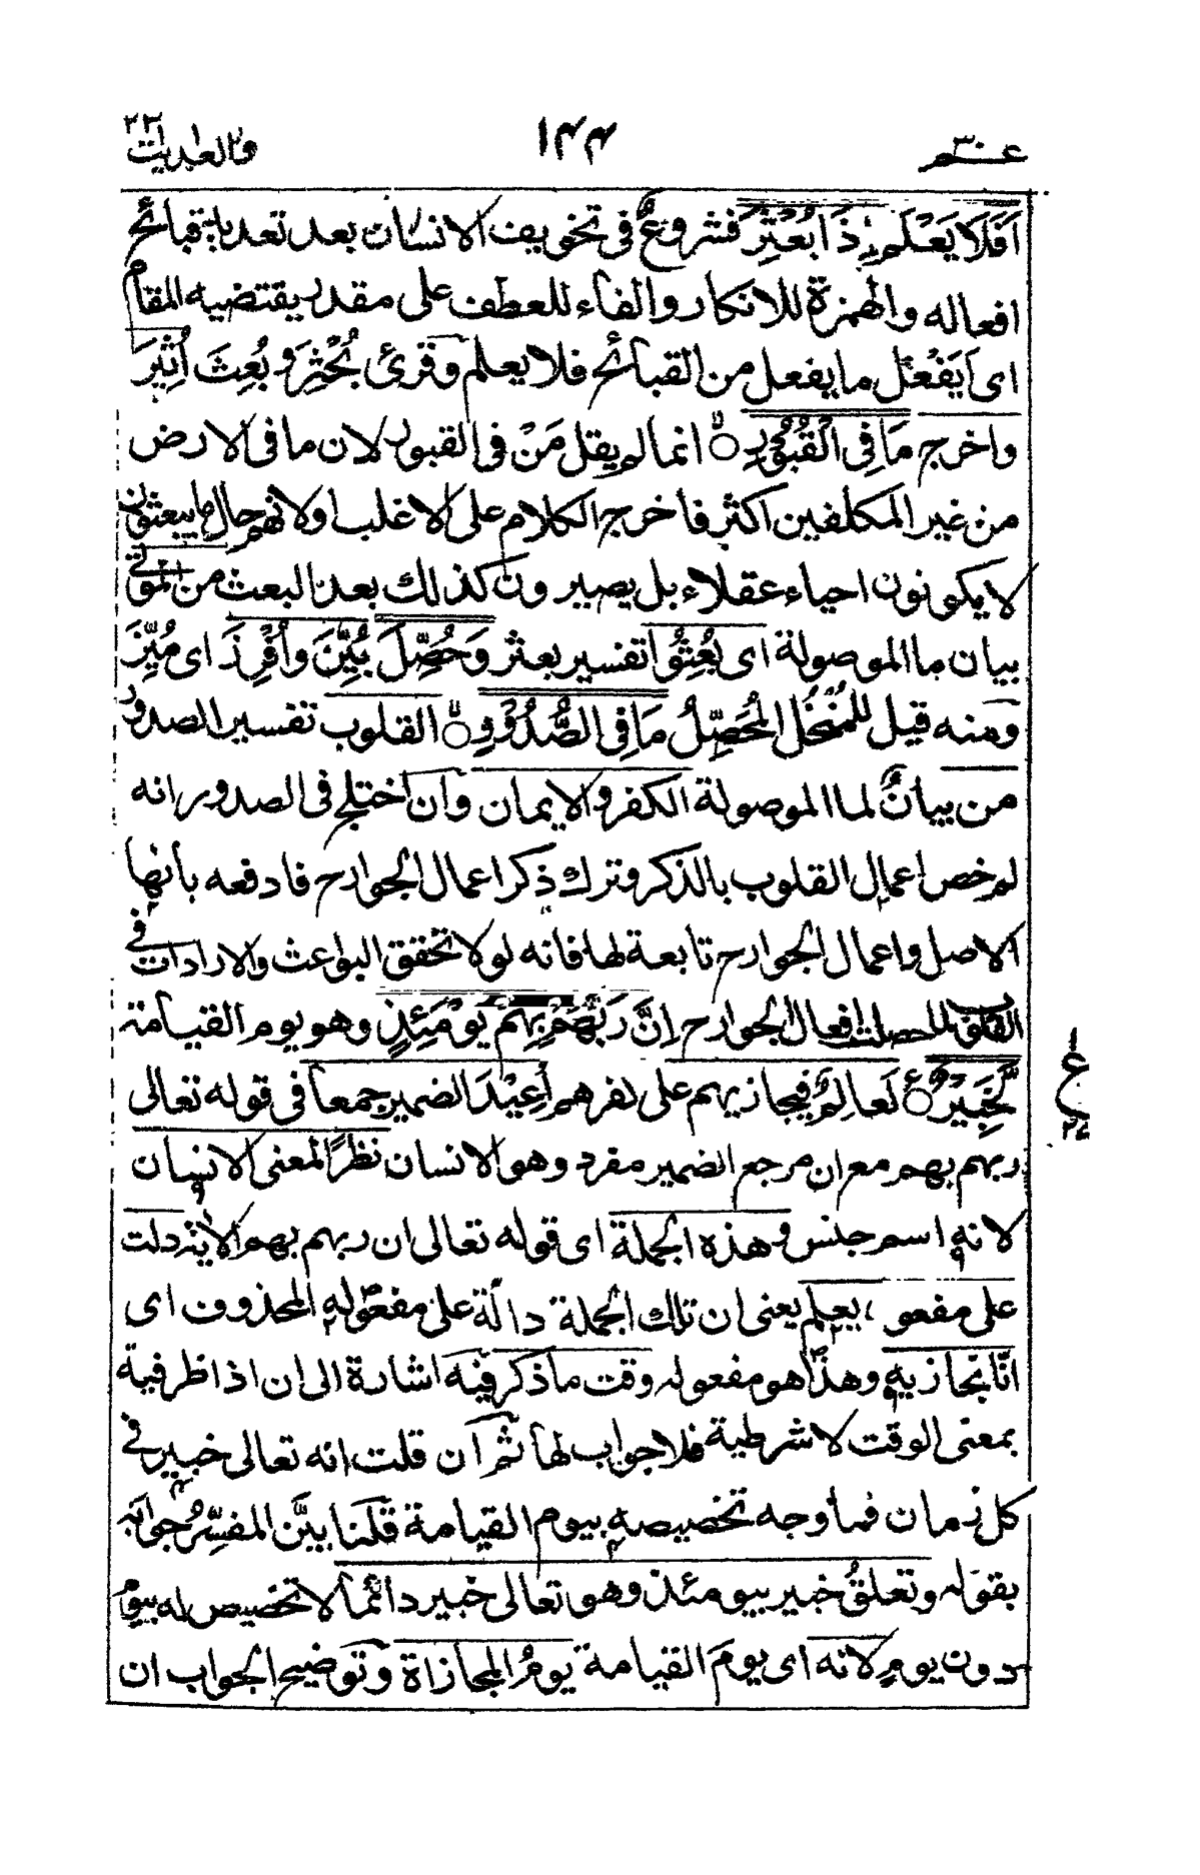 عـــم ٣٠ ١٤٤ والعٰديٰت
اَفَلَا يَعْلَمُ اِذَا بُعْثِرَ فشروعٌ فى تخويف الانسان بعد تعديد قبائح
افعاله والهمزة للانكار والفاء للعطف على مقدر يقتضيه المقام
اى اَيَفْعَلُ ما يفعل من القبائح فلا يعلم وقرئ بُحْثِرَ وبُعِثَ اُثِيْرَ
واخرج مَا فِى الْقُبُوْرِ ۙ انما لم يقل مَنْ فى القبور لان ما فى الارض
من غير المكلفين اكثر فاخرج الكلام على الاغلب اولانهم حال ما يبعثون
لا يكونون احياء عقلاء بل يصيرون كذلك بعد البعث من الموتٰى
بيان ما الموصولة اى بُعِثُوا تفسير بعثر وَحُصِّلَ بُيِّنَ وَاُفْرِزَ اى مُيِّزَ
ومنه قيل للمُنْخُل المُحَصِّلُ مَا فِى الصُّدُوْرِ ۙ القلوب تفسير الصدور
من بيانٌ لما الموصولة الكفر والايمان وان اختلج فى الصدور انه
لم خص اعمال القلوب بالذكر وترك ذكر اعمال الجوارح فادفعه بانها
الاصل واعمال الجوارح تابعة لها فانه لولا تحقق البواعث والارادات فى
القلوب لما حصلت افعال الجوارح اِنَّ رَبَّهُمْ بِهِمْ يَوْمَئِذٍ وهو يوم القيامة
لَّخَبِيْرٌ ۧ لَعالِمٌ فيجازيهم على كفرهم اُعِيْدَ الضمير جمعا فى قوله تعالى
ربهم بهم مع ان مرجع الضمير مفرد وهو الانسان نظرًا لمعنى الانسان
لانه اسم جنس وهذه الجملة اى قوله تعالى ان ربهم بهم الاية دلت
على مفعول يعلم يعنى ان تلك الجملة دالّة على مفعوله المحذوف اى
انّا نجازيه وهذا هو مفعوله وقت ما ذكر فيه اشارة الى ان اذا ظرفية
بمعنى الوقت لا شرطية فلا جواب لها ثم ان قلت انه تعالى خبير فى
كل زمان فما وجه تخصيصه بيوم القيامة قلنا بيَّن المفسِّرُ جوابه
بقوله وتعلقُ خبير بيومئذ وهو تعالى خبير دائمًا لا تخصيص له بيوم
دون يوم لانه اى يومَ القيامة يومُ المجازاة وتوضيح الجواب ان